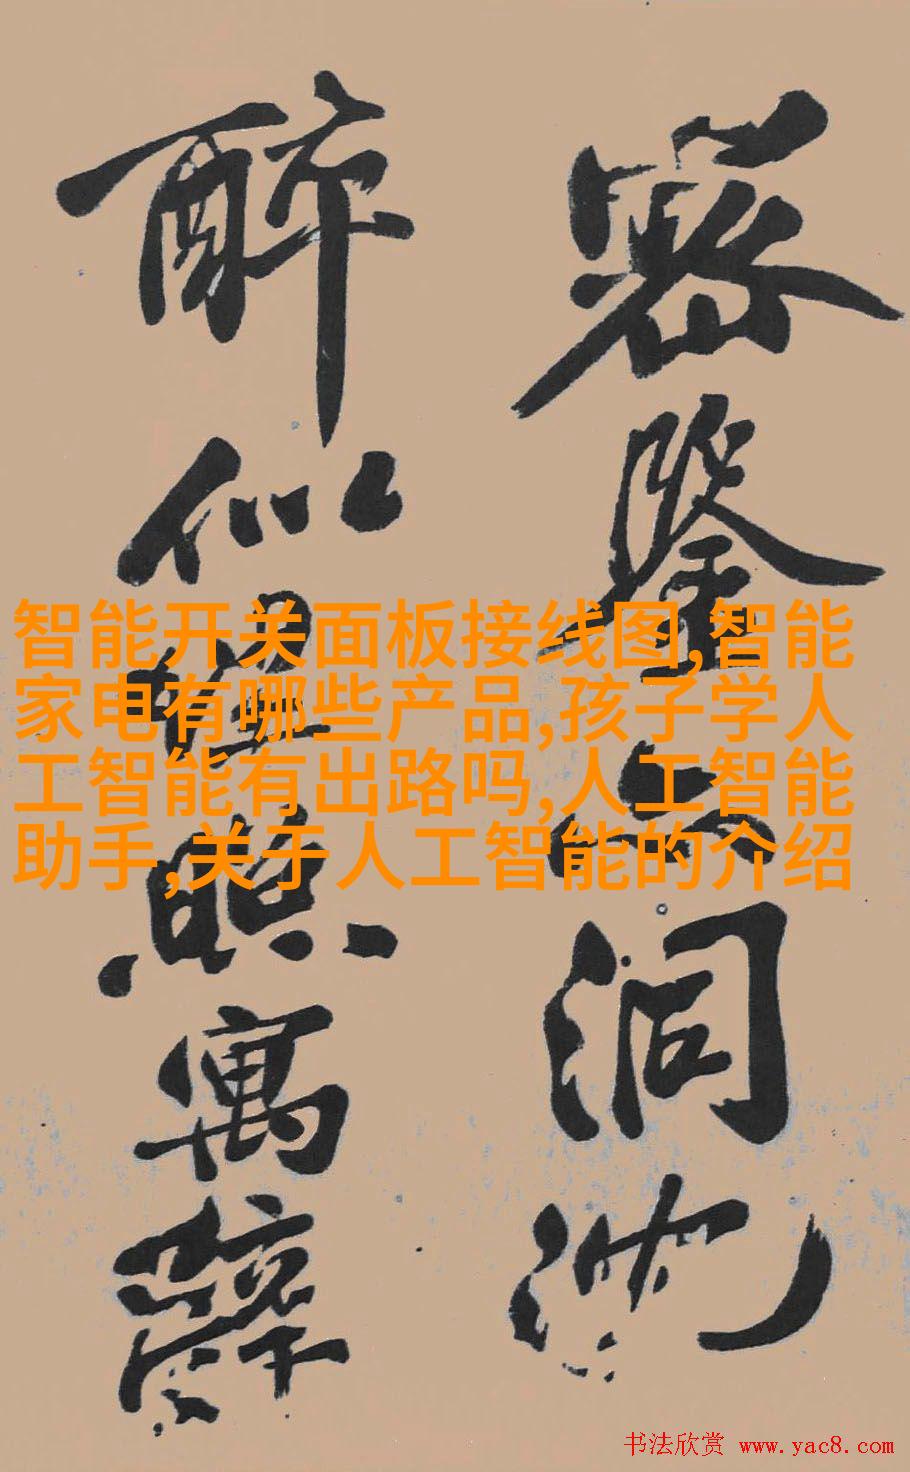 密鑒洞
醉似照寓
智能开关面板接线图,智能
家电有哪些产品,孩子学人
工智能有出路吗,人工智能
助手,关于人工智能的介绍
书法欣赏 www.yac8.com